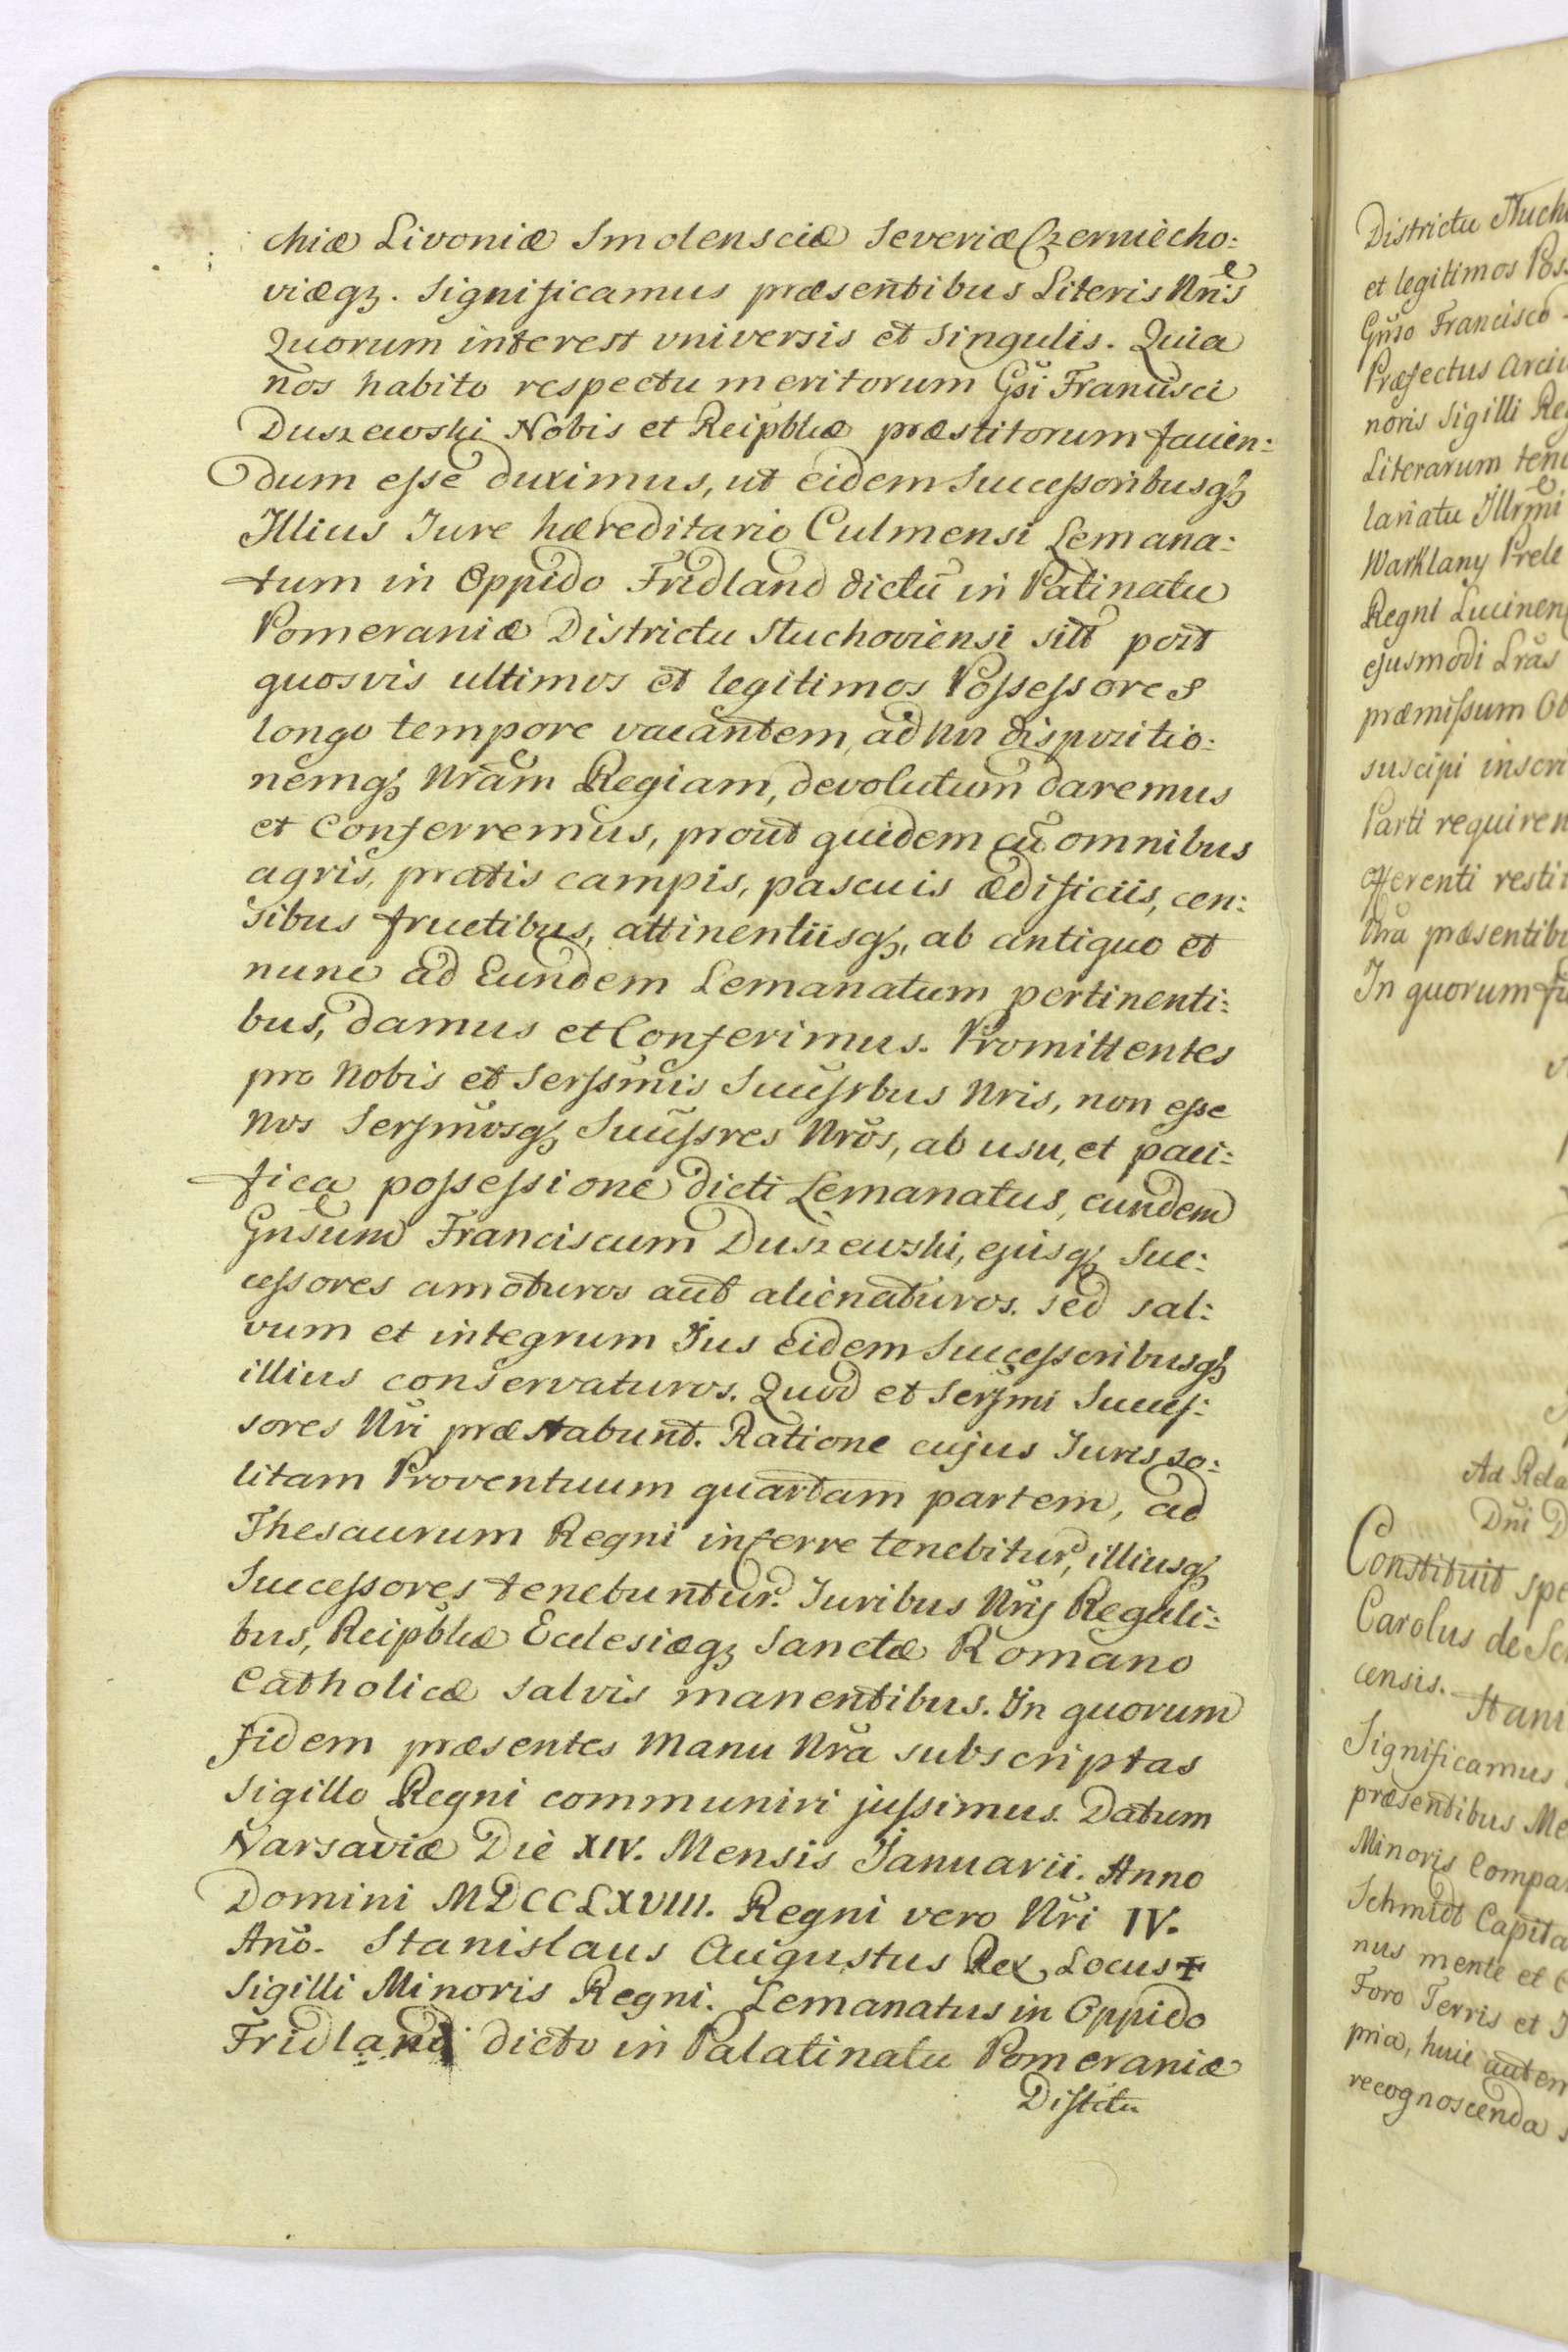 chiæ Livoniæ Smolensciæ Severiæ Czerniecho:
viæqz. Significamus præsentibus Literis Nris
Quorum interest universis et singulis. Quia
nos habito respectu meritorum Gsi Francisci
Duszewski Nobis et Reipblcæ præstitorum facien:
dum eſse duximus, ut eidem Succeſsoribusqz
Illius Jure hæreditario Culmensi Lemana:
tum in Oppido Fridland dictũ in Patinatu
Pomeraniæ Districtu Stuchoviensi sitt post
quosvis ultimos et legitimos Poſseſsores
longo tempore vacantem, ad Nos dispozitio:
nemqz Nram Regiam, devolutum daremus
et Conferremus, prout quidem cũ omnibus
agris, pratis campis, pascuis ædificiis, cen:
sibus fructibus, attinentiisqz, ab antiquo et
nunc ad Eundem Lemanatum pertinenti:
bus, damus et Conferimus. Promittentes
pro Nobis et Serſsmis Succeſsrbus Nris, non eſse
Nos Serſmosqz Succeſsres Nros, ab usu, et paci:
fica poſseſsione dicti Lemanatus, eundem
Gnsum Franciscum Duszewski, ejusqz Suc:
ceſsores amoturos aut alienaturos. sed sal:
vum et integrum Jus eidem Succeſsoribusqz
illius conservaturos. Quod et Serſmi Succeſ:
sores Nri præstabunt. Ratione cujus Juris so:
litam Proventuum quartam partem, ad
Thesaurum Regni inferre tenebitur, illiusqz
Succeſsores tenebuntur. Juribus Nris Regali:
bus, Reipblcæ Ecclesiæqz Sanctæ Romano
Catholicæ salvis manentibus. In quorum
fidem præsentes Manu Nra subscriptas
Sigillo Regni communiri juſsimus. Datum
Varsaviæ Die XIV. Mensis Januarii. Anno
Domini MDCCLXVIII. Regni vero Nri IV.
Año. Stanislaus Augustus Rex, Locus +
Sigilli Minoris Regni. Lemanatus in Oppido
Fridland dicto in Palatinatu Pomeraniæ
Diſtctu
Districtu Stucho
et legitimos Pos
Gnso Francisco
Præfectus
noris Sigilli Re
Literarum ten
lariatu Jllrmi
Warklany
Regni Lucinen
ejusmodi Lras
præmiſsum Ob
suscipi inscri
Parti requiren
offerenti resti
Nra præsentibu
In quorum fi
Ad Rela
Dni D
Constituit spe
Carolus de Sc
censis. Stani
Significamus
præsentibus Me
Minoris Compa
Schmidt Capita
nus mente et
Foro Terris et
pria, huic autem
recognoscenda